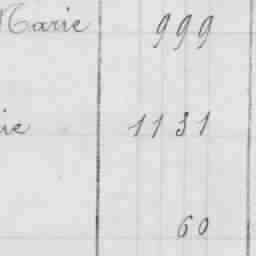 Marie 999
ie 1131
60